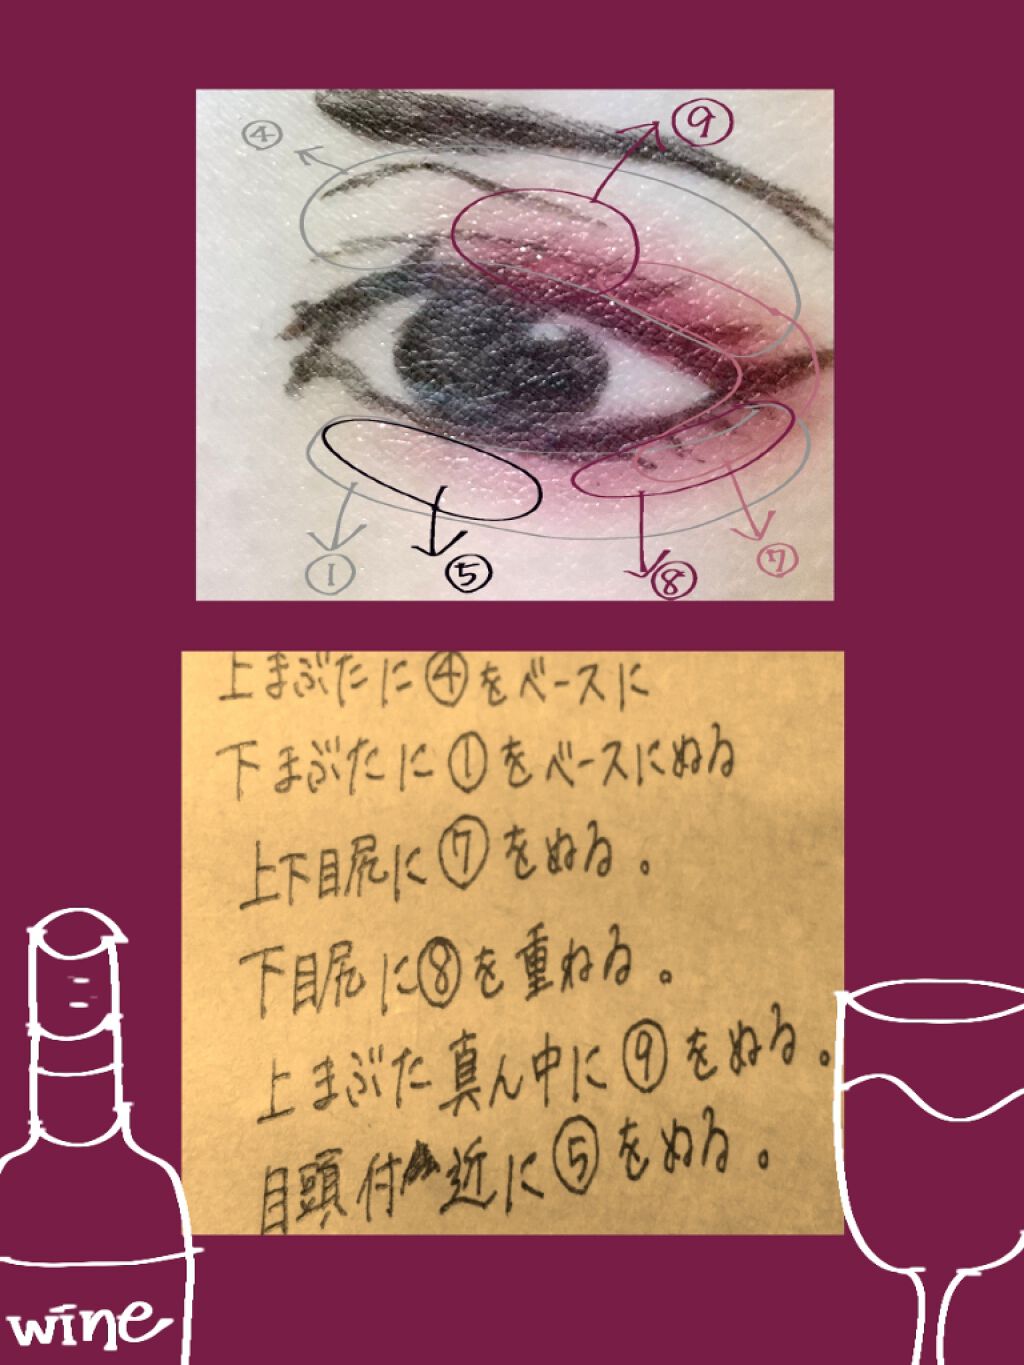 ④
⑨
①
⑤
⑧
⑦
上まぶたに④をベースに
下まぶたに①をベースにぬる
上下目尻に⑦をぬる。
下目尻に⑧を重ねる。
上まぶた真ん中に⑨をぬる。
目頭付近に⑤をぬる。
wine